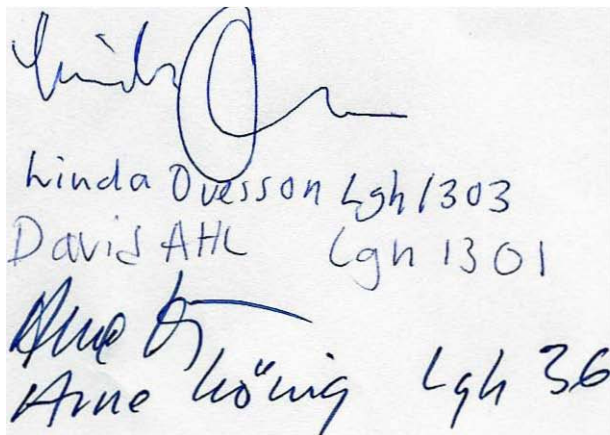 Linda Ovesson Lgh 1303
David AHL Lgh 1301
Arne König Lgh 36